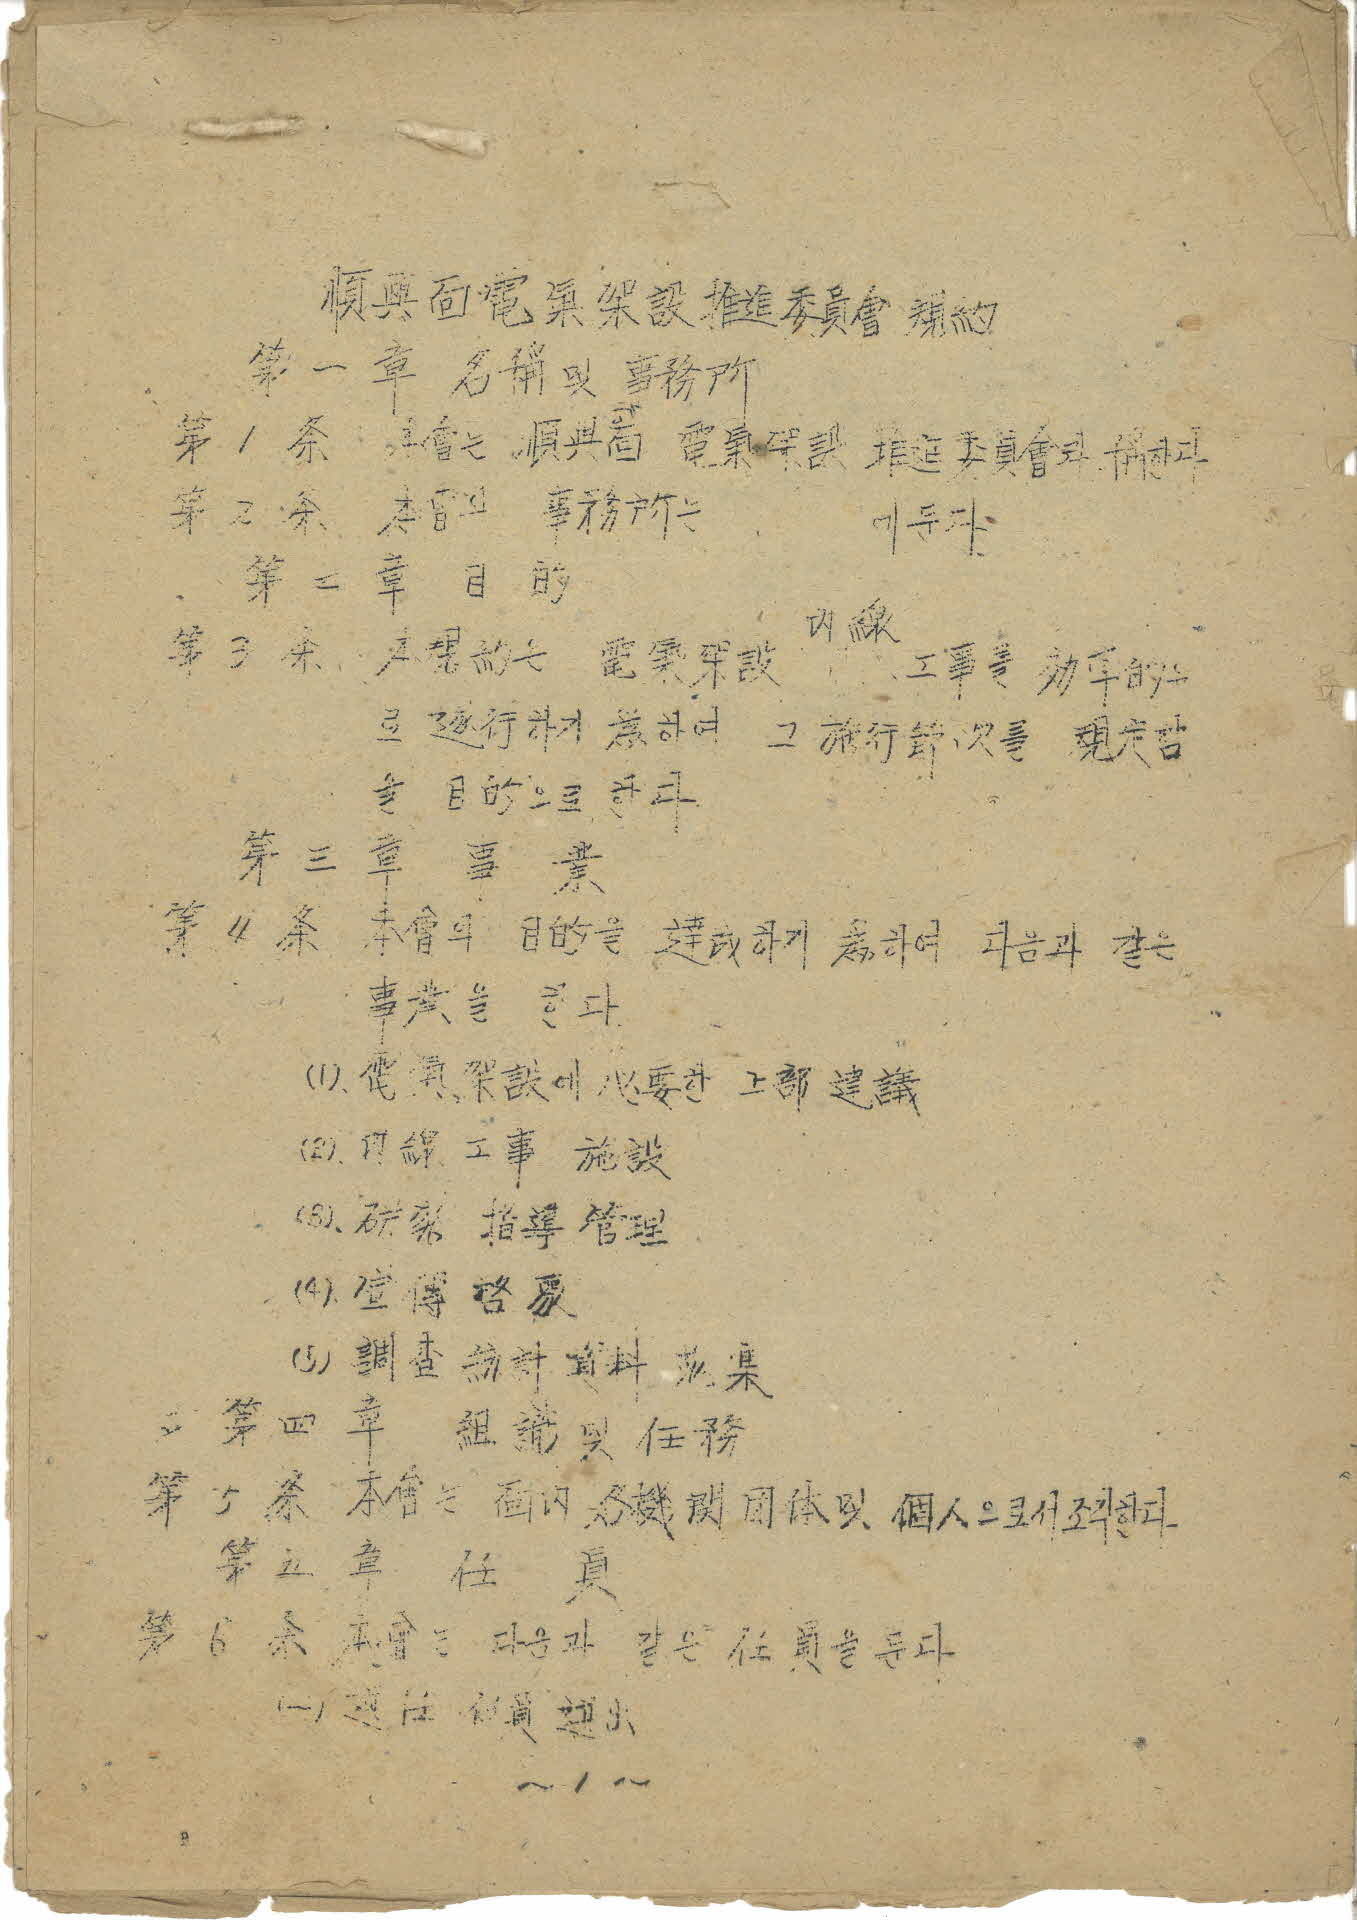 順興面電氣架設推進委員會 規約
第一章 名稱 및 事務所
第1条 本會는 順興面 電氣架設 推進委員會라 稱하다
第2条 本會의 事務所는 에 둔다
第二章 目的
內線
第3条 本規約는 電氣架設 工事를 効率的으
로 遂行하기 爲하여 그 施行節次를 規定함
을 目的으로 한다
第三章 事業
第4条 本會의 目的을 達成하기 爲하여 다음과 같은
事業을 한다
(1). 電氣架設에 必要한 上部 建議
(2). 內線 工事 施設
(3). 硏究 指導 管理
(4). 宣傳 啓蒙
(5) 調査 統計 資料 蒐集
第四章 組織 및 任務
第5条 本會는 面內 各機関 団体 및 個人으로서 조직한다
第五章 任員
第6条 本會는 다음과 같은 任員을 둔다
(一) 選任 任員 選出
~1~